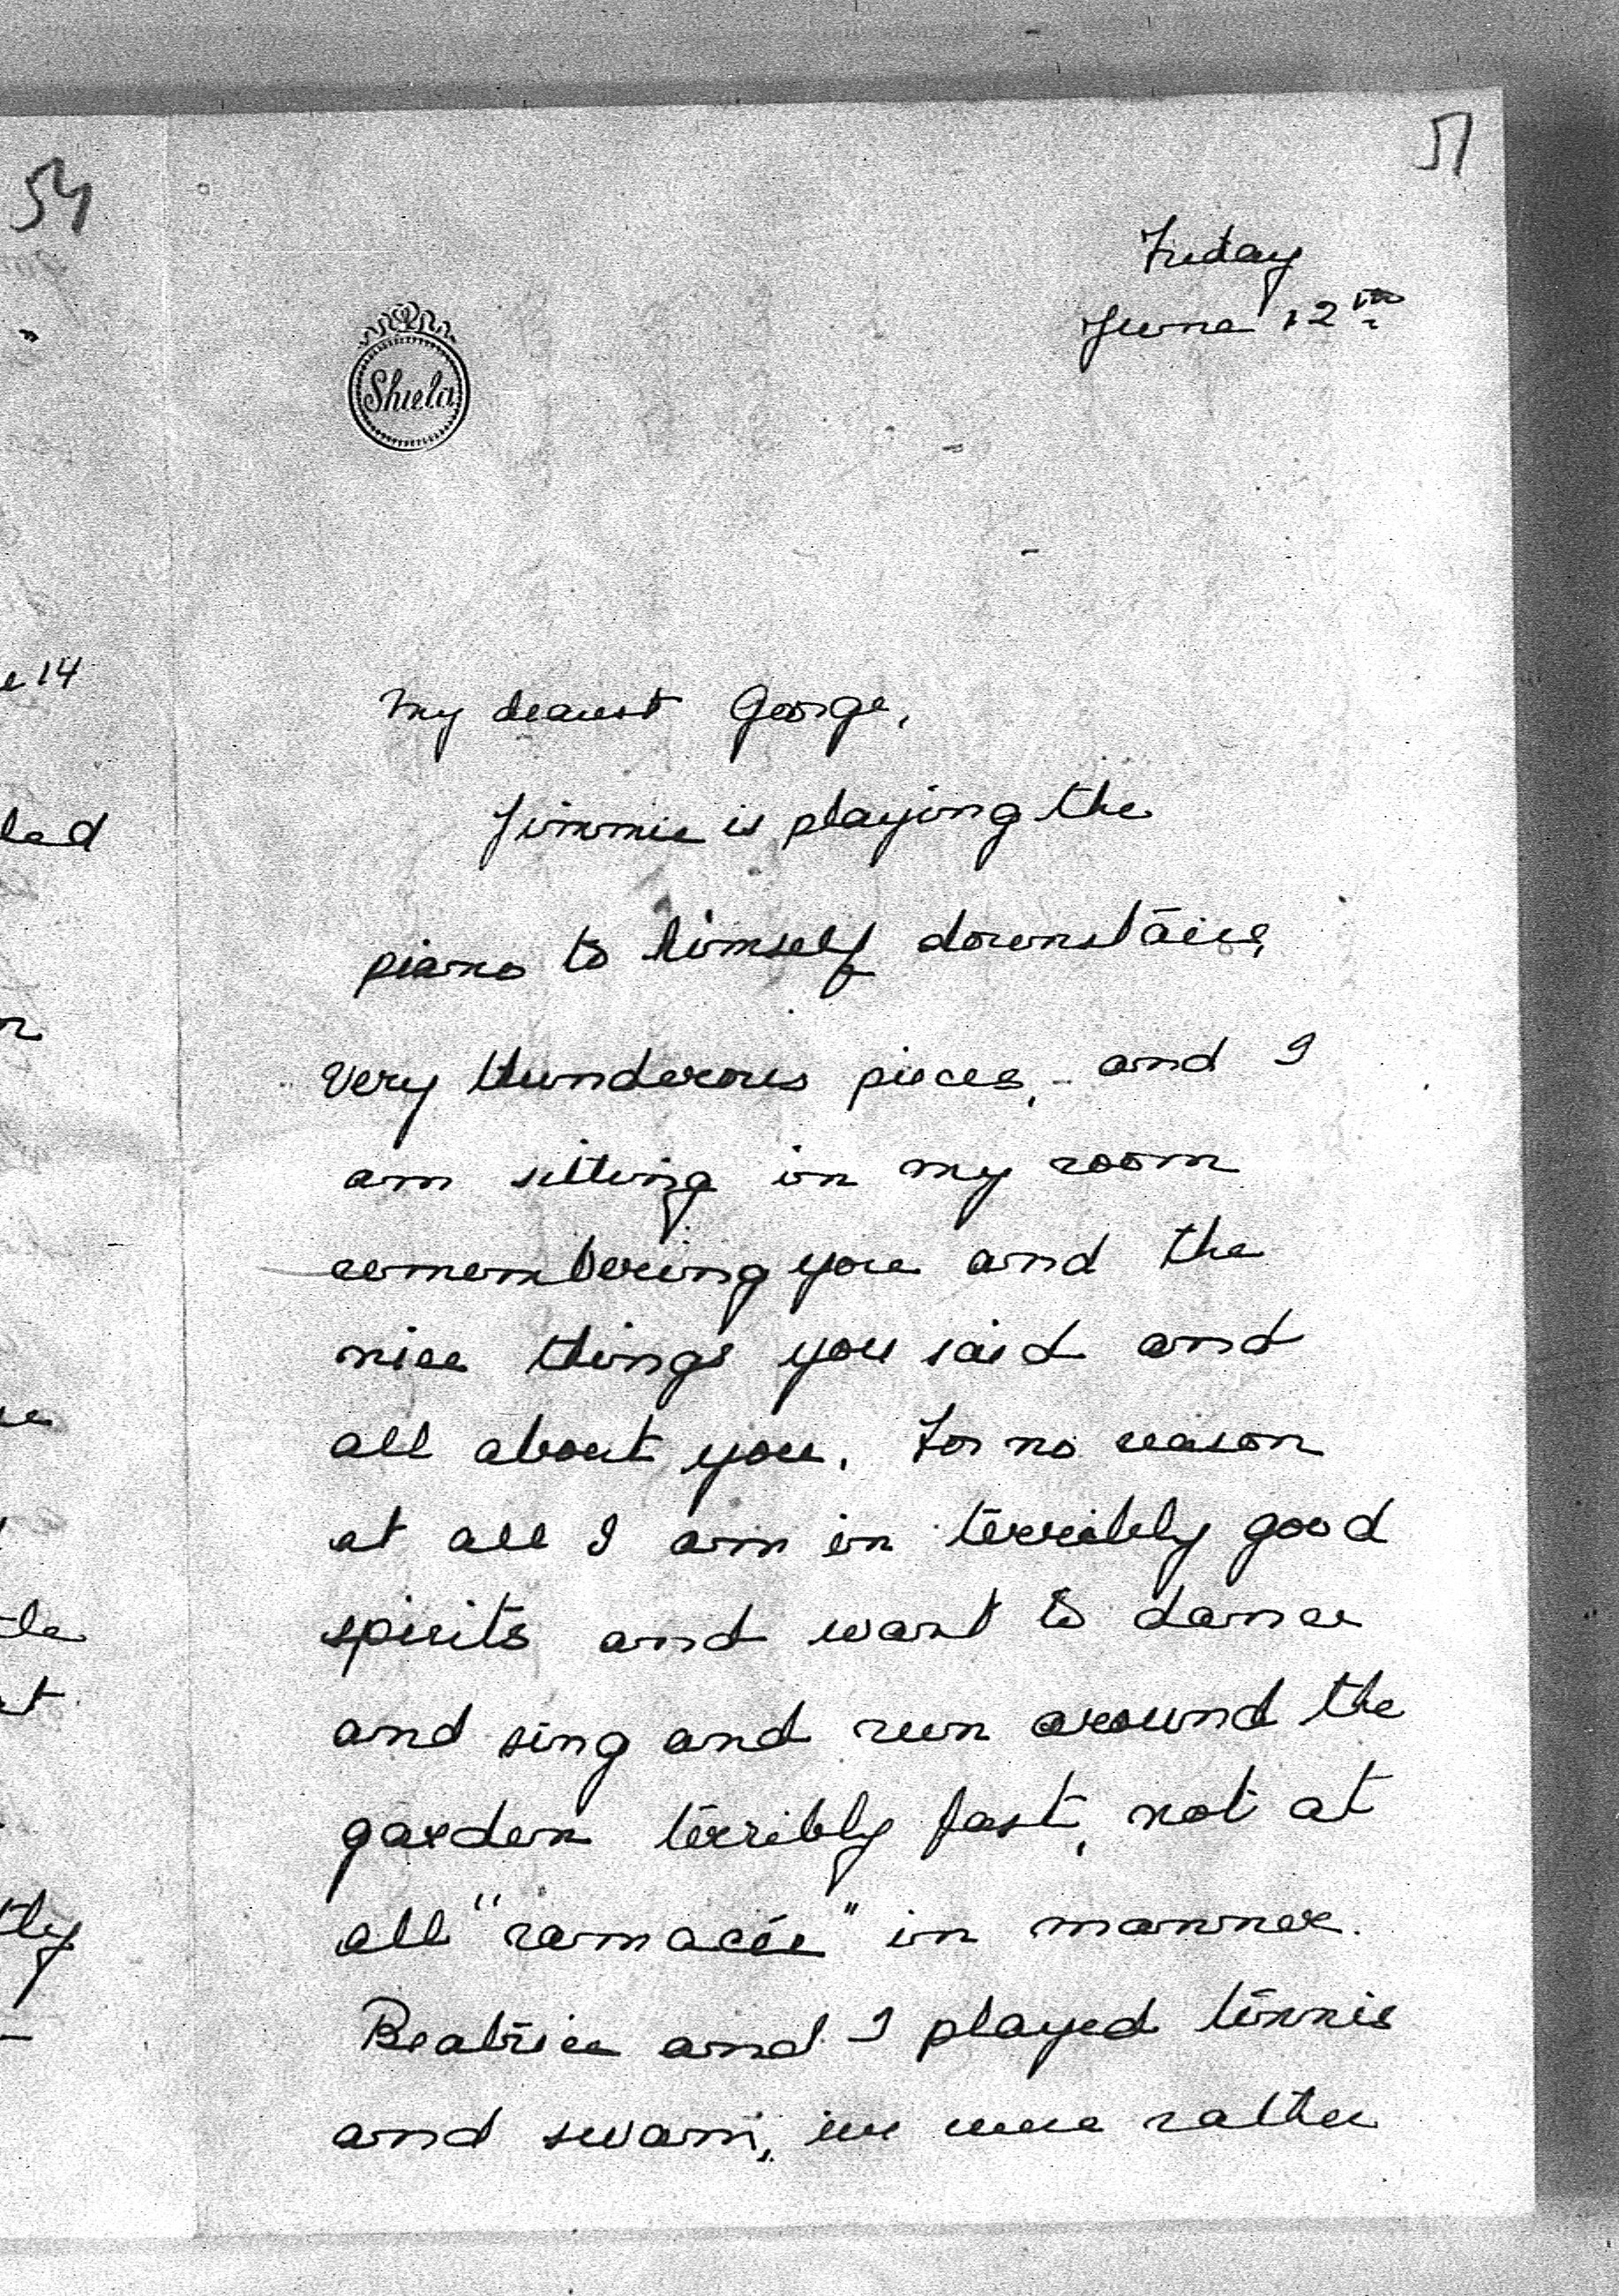 54
51
Friday
June 12th
Shiela
e 14
led
My dearest George,
Jimmie is playing the
piano to himself downstairs,
very thunderous pieces, - and I
am sitting in my room
remembering you and the
nice things you said and
all about you. For no reason
at all I am in terribly good
spirits and want to dance
and sing and run around the
garden terribly fast, not at
all "ramacée" in manner.
Beatrice and I played tennis
and swam, we were rather
tly